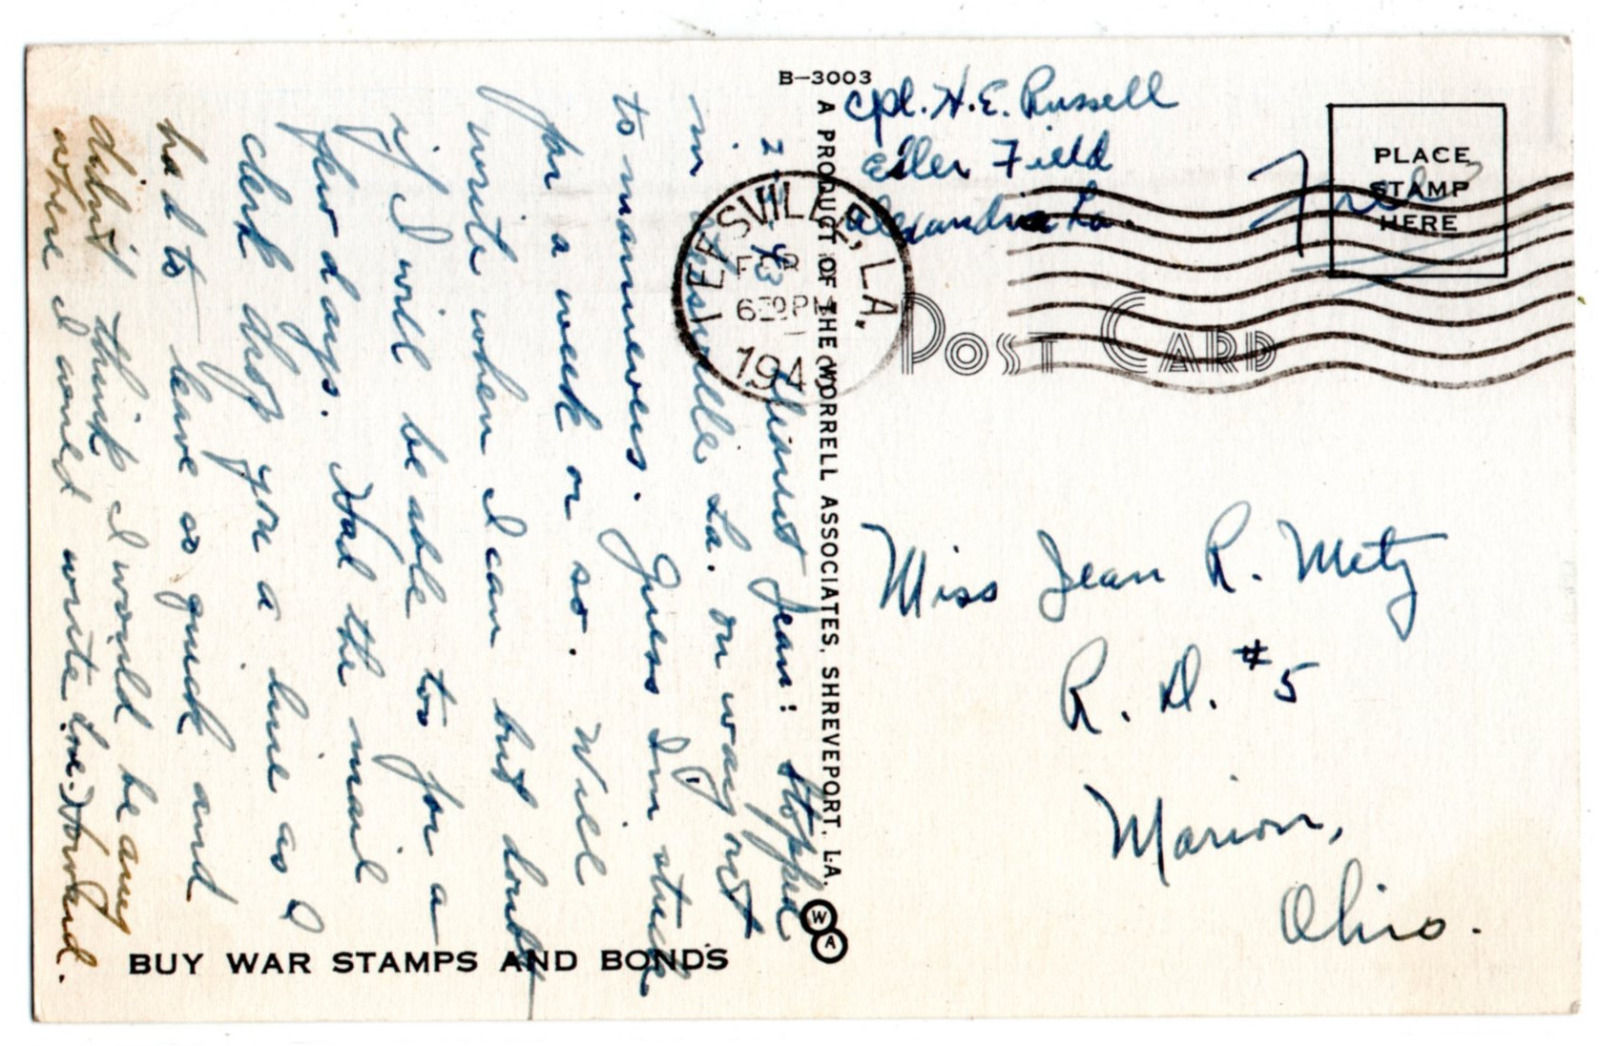 B-3003
A PRODUCT OF THE WORRELL ASSOCIATES, SHREVEPORT, LA.
W A
Cpl. H.E. Russell
Esler Field
Alexandria La.
Free
PLACE
STAMP
HERE
LEESVILLE, LA.
6 PM
194
POST CARD
Miss Jean R. Metz
R. D. #5
Marion,
Ohio.
2-11-43
Dearest Jean: Stopped
in Leesville La. on way out
to manuevers. Guess I'm stuck
for a week or so. Will
write when I can but doubt
if I will be able to for a
few days. Had the mail
clerk drop you a line as I
had to leave so quick and
didn't think I would be any
where I could write. Love. Howard.
BUY WAR STAMPS AND BONDS